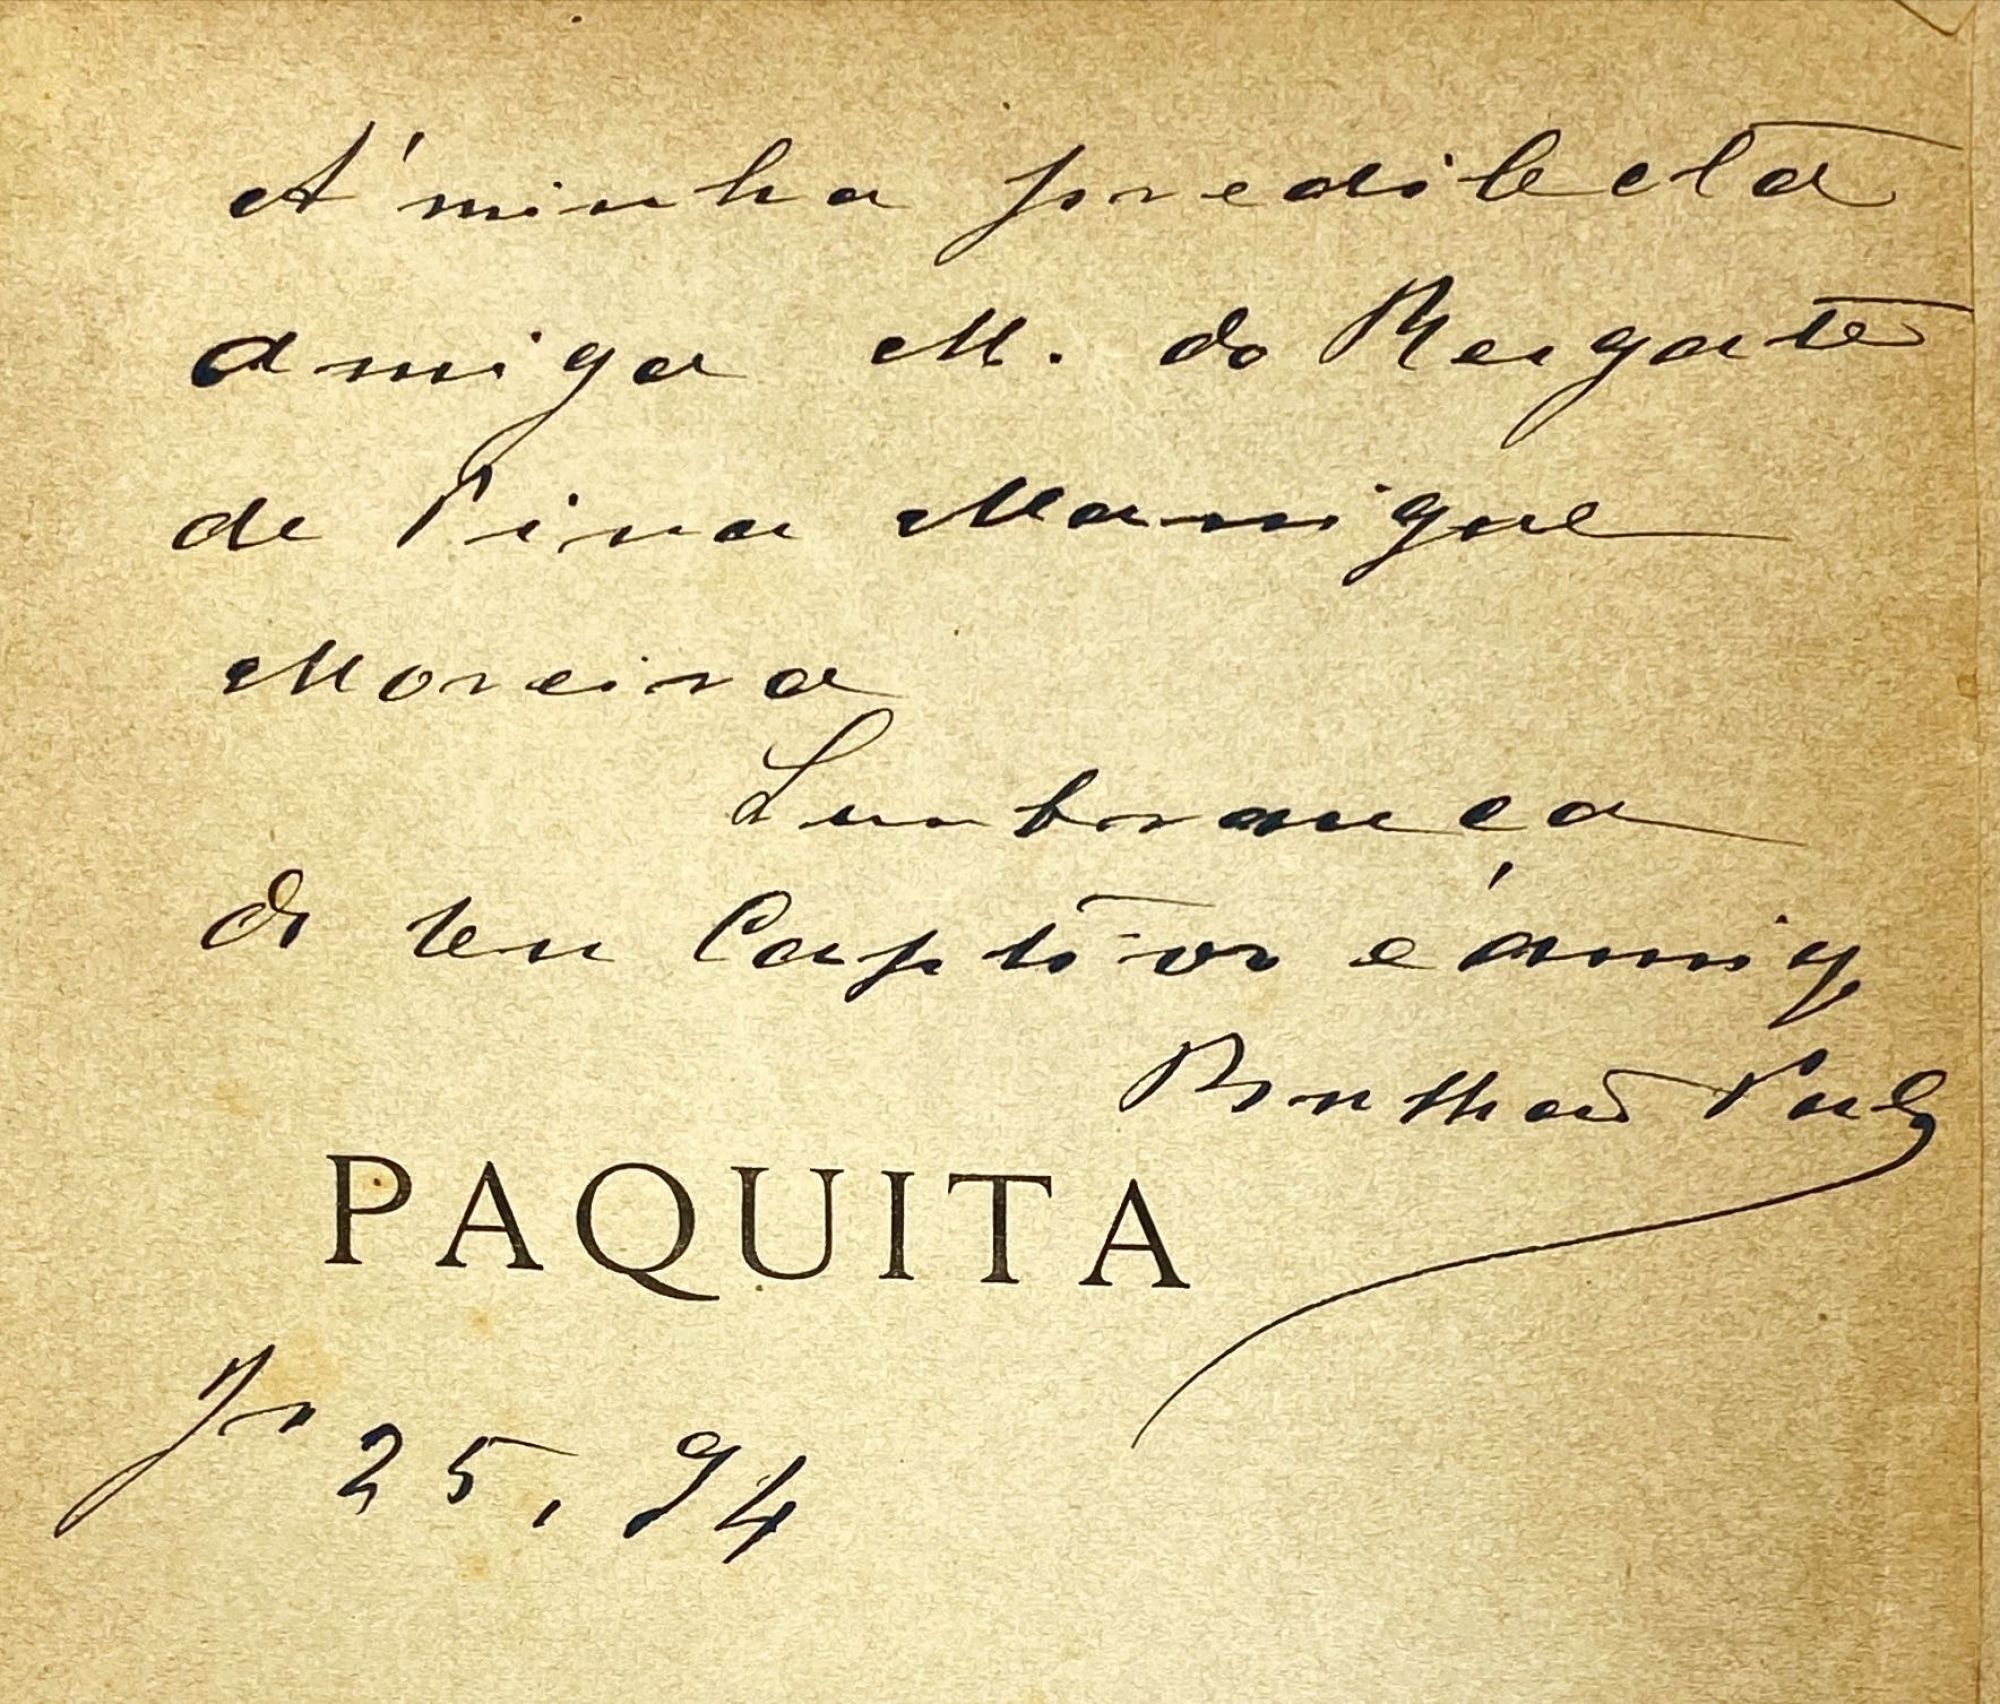 A' minha predilecta
amiga M. do Resgate
de Pina Manique
Moreira
Lembrança
do seu Captivo e amigo
Bulhão Pato
PAQUITA
Jo 25, 94